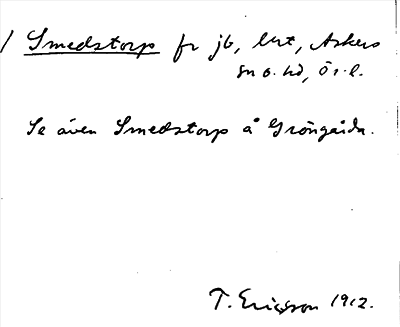 / Smedstorp fr jb, lht, Askers
sn o. hd, Ör. l.
Se även Smedstorp å Gröngärda.
T. Ericsson 1912.